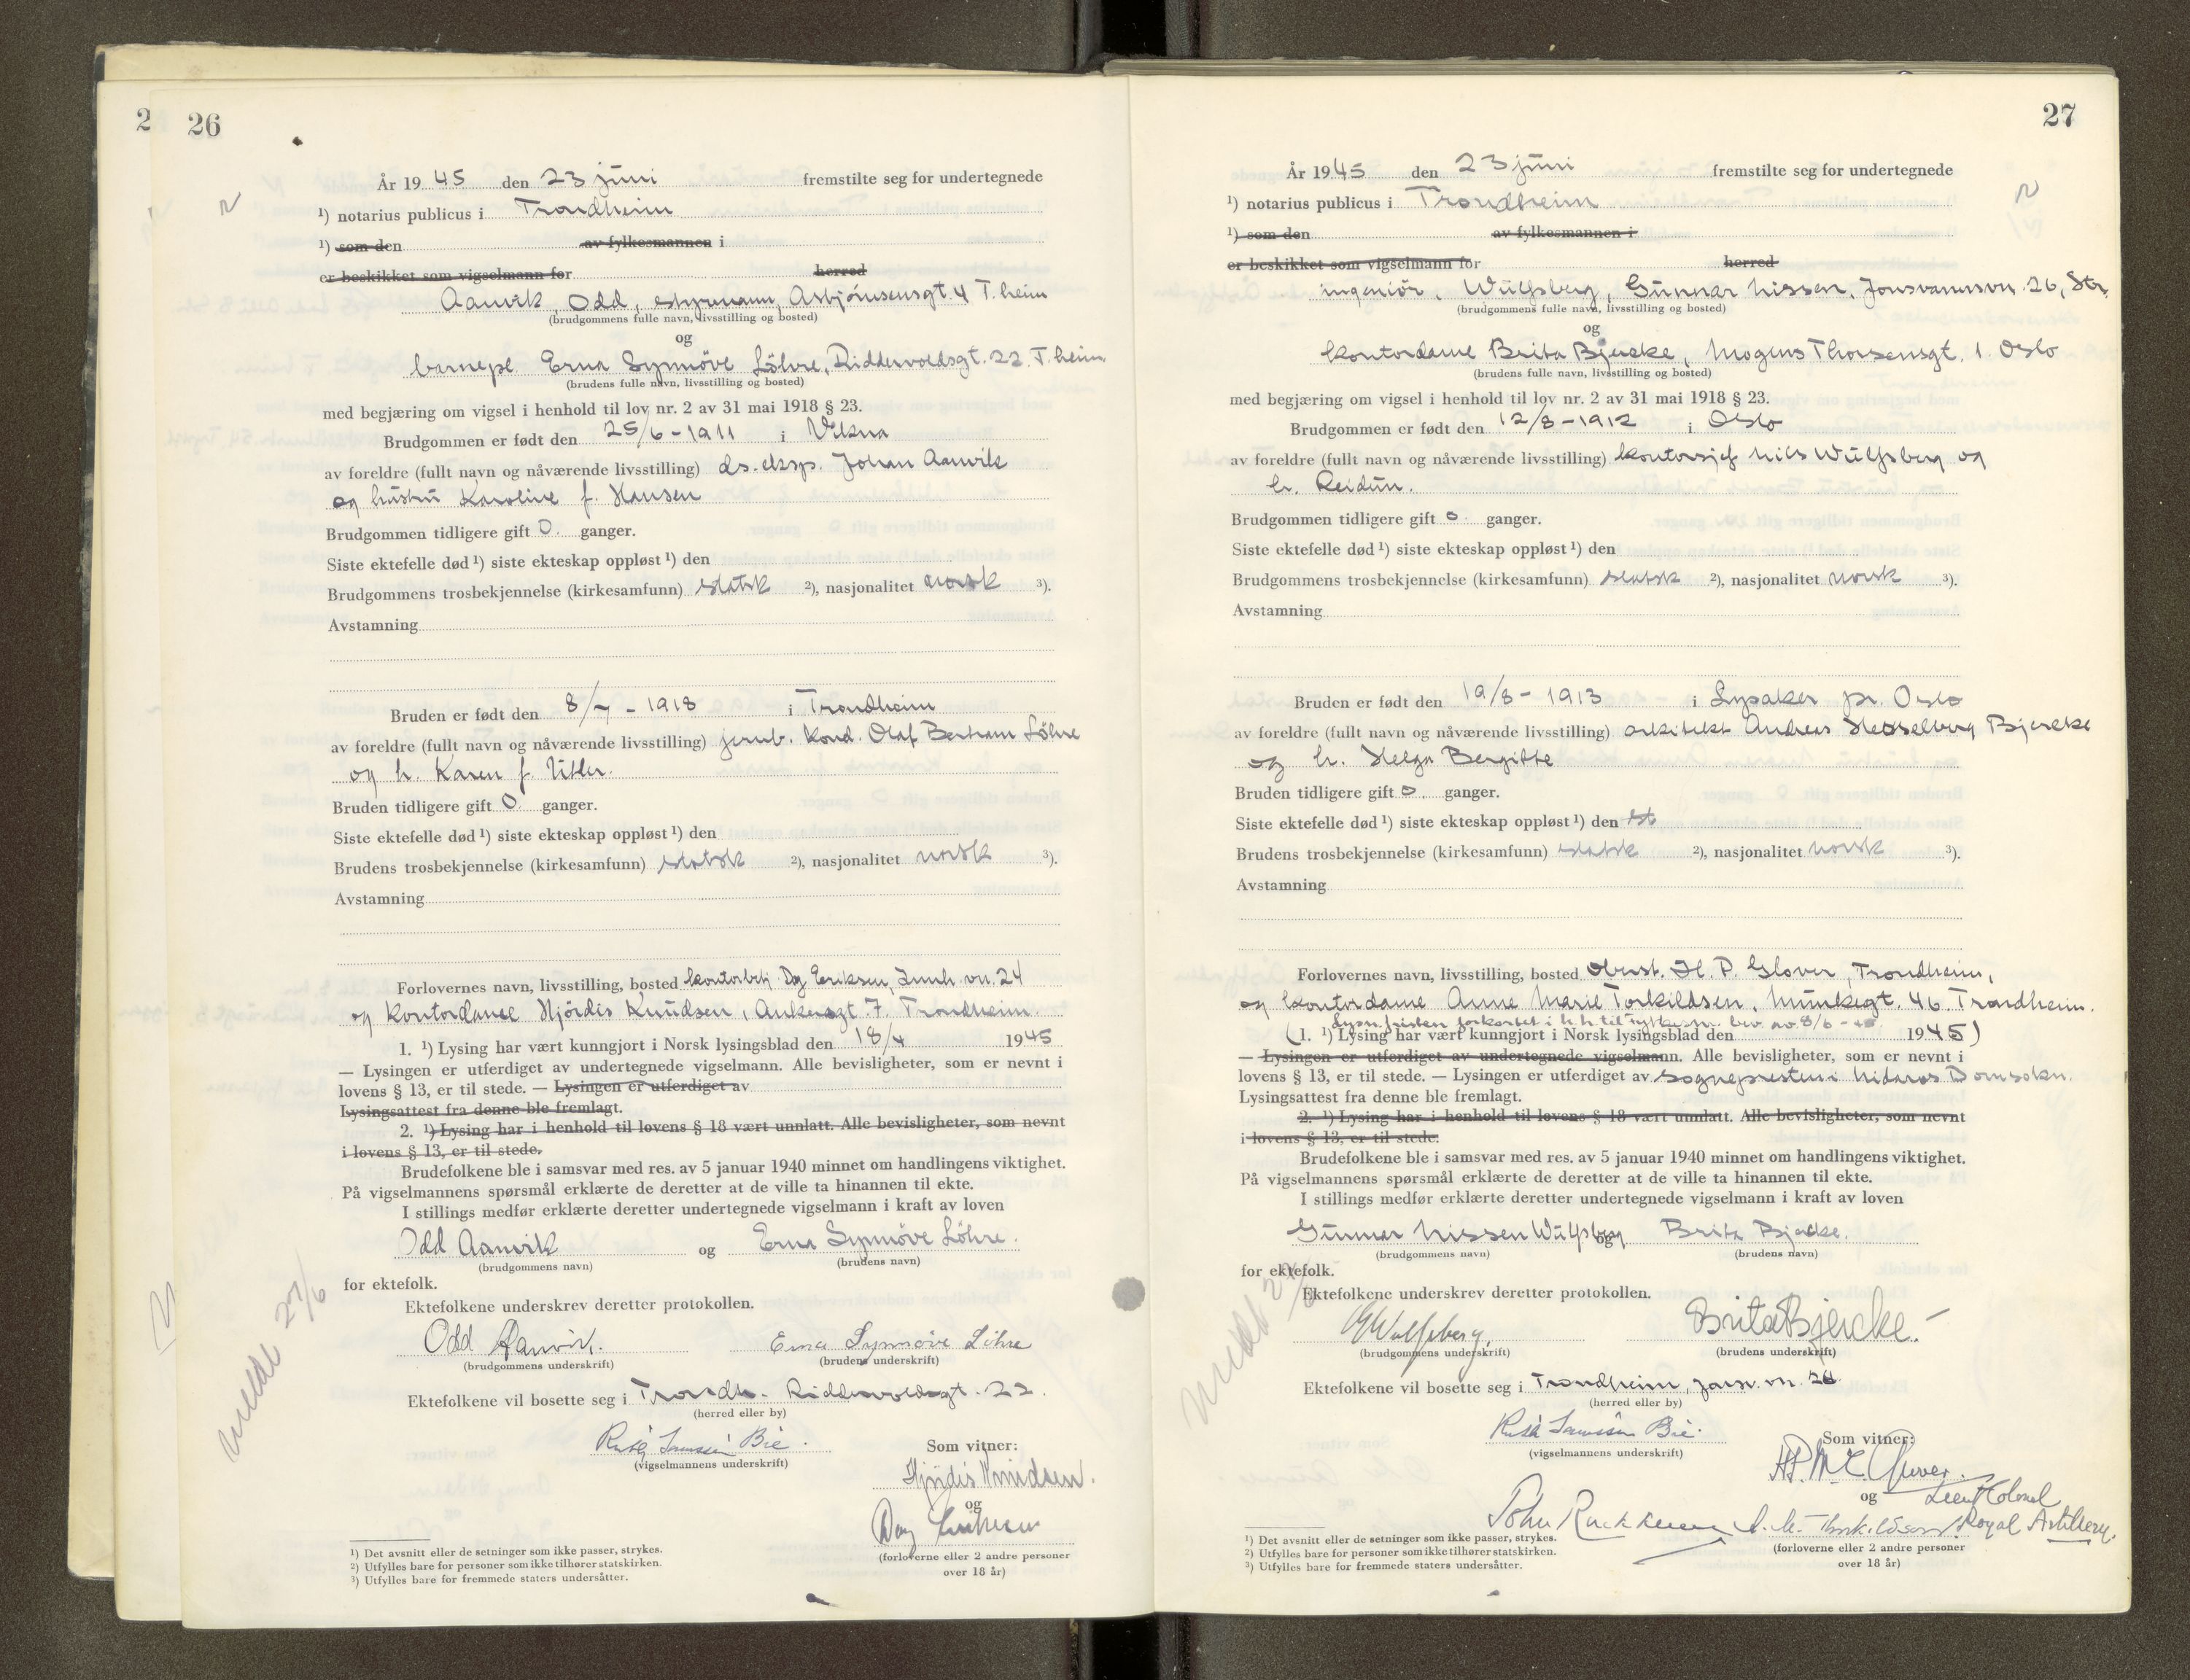 2
26
År 19 45 den 23 juni fremstilte seg for undertegnede
¹) notarius publicus i Trondheim
¹) som den av fylkesmannen i
er beskikket som vigselmann for herred
Aanvik, Odd, styrmann, Asbjörnsensgt. 4 T.heim
(brudgommens fulle navn, livsstilling og bosted)
og
barnepl. Erna Synnöve Löhre, Riddervoldsgt. 22 T.heim
(brudens fulle navn, livsstilling og bosted)
med begjæring om vigsel i henhold til lov nr. 2 av 31 mai 1918 § 23.
Brudgommen er født den 25/6 - 1911 i Vikna
av foreldre (fullt navn og nåværende livsstilling) ds. eksp. Johan Aanvik
og hustru Karoline f. Hansen
Brudgommen tidligere gift 0 ganger.
Siste ektefelle død ¹) siste ekteskap oppløst ¹) den
Brudgommens trosbekjennelse (kirkesamfunn) statsk ²), nasjonalitet norsk ³).
Avstamning
Bruden er født den 8/7 - 1918 i Trondheim
av foreldre (fullt navn og nåværende livsstilling) jernb. kond. Olaf Bertram Löhre
og h. Karen f. Utler.
Bruden tidligere gift 0 ganger.
Siste ektefelle død ¹) siste ekteskap oppløst ¹) den
Brudens trosbekjennelse (kirkesamfunn) statsk ²), nasjonalitet norsk ³).
Avstamning
Forlovernes navn, livsstilling, bosted kontorbetj. Dag Eriksen, vn. 24
og kontordame Hjördis Knudsen, Ankersgt. 7. Trondheim.
1. ¹) Lysing har vært kunngjort i Norsk lysingsblad den 18/4 1945
— Lysingen er utferdiget av undertegnede vigselmann. Alle bevisligheter, som er nevnt i
lovens § 13, er til stede. — Lysingen er utferdiget av
Lysingsattest fra denne ble fremlagt.
2. ¹) Lysing har i henhold til lovens § 18 vært unnlatt. Alle bevisligheter, som nevnt
i lovens § 13, er til stede.
Brudefolkene ble i samsvar med res. av 5 januar 1940 minnet om handlingens viktighet.
På vigselmannens spørsmål erklærte de deretter at de ville ta hinannen til ekte.
I stillings medfør erklærte deretter undertegnede vigselmann i kraft av loven
Odd Aanvik og Erna Synnöve Löhre.
(brudgommens navn) (brudens navn)
for ektefolk.
Ektefolkene underskrev deretter protokollen.
Odd Aanvik. Erna Synnöve Löhre
(brudgommens underskrift) (brudens underskrift)
Ektefolkene vil bosette seg i Trondh. Riddervoldsgt. 22.
(herred eller by)
Bie. Som vitner:
(vigselmannens underskrift)
Hjördis Knudsen.
og
Dag Eriksen
(forloverne eller 2 andre personer
over 18 år)
melde 27/6
¹) Det avsnitt eller de setninger som ikke passer, strykes.
²) Utfylles bare for personer som ikke tilhører statskirken.
³) Utfylles bare for fremmede staters undersåtter.
27
År 1945 den 23 juni fremstilte seg for undertegnede
¹) notarius publicus i Trondheim
¹) som den av fylkesmannen i
er beskikket som vigselmann for herred
ingeniör, Wulfsberg, Gunnar Nissen, Jonsvannsvn. 26, Str.
(brudgommens fulle navn, livsstilling og bosted)
og
kontordame Brita Bjercke, Mogens Thorsensgt. 1 Oslo
(brudens fulle navn, livsstilling og bosted)
med begjæring om vigsel i henhold til lov nr. 2 av 31 mai 1918 § 23.
Brudgommen er født den 12/8 - 1912 i Oslo
av foreldre (fullt navn og nåværende livsstilling) kontorsjef Nils Wulfsberg og
h. Reidun.
Brudgommen tidligere gift 0 ganger.
Siste ektefelle død ¹) siste ekteskap oppløst ¹) den
Brudgommens trosbekjennelse (kirkesamfunn) statsk ²), nasjonalitet norsk ³).
Avstamning
Bruden er født den 19/8 - 1913 i Lysaker pr. Oslo
av foreldre (fullt navn og nåværende livsstilling) arkitekt Andreas Hesselberg Bjercke
og h. Helga Bergitte
Bruden tidligere gift 0 ganger.
Siste ektefelle død ¹) siste ekteskap oppløst ¹) den
Brudens trosbekjennelse (kirkesamfunn) statsk ²), nasjonalitet norsk ³).
Avstamning
Forlovernes navn, livsstilling, bosted oberst. H. P. Glover, Trondheim,
og kontordame Anne Marie Torkildsen, Munkegt. 46. Trondheim.
Lysn. fristen forkortet i h. h. til fylkesm. brev av 8/6 - 45
(1. ¹) Lysing har vært kunngjort i Norsk lysingsblad den 1945)
— Lysingen er utferdiget av undertegnede vigselmann. Alle bevisligheter, som er nevnt i
lovens § 13, er til stede. — Lysingen er utferdiget av sognepresten i Nidaros Domsokn.
Lysingsattest fra denne ble fremlagt.
2. ¹) Lysing har i henhold til lovens § 18 vært unnlatt. Alle bevisligheter, som nevnt
i lovens § 13, er til stede.
Brudefolkene ble i samsvar med res. av 5 januar 1940 minnet om handlingens viktighet.
På vigselmannens spørsmål erklærte de deretter at de ville ta hinannen til ekte.
I stillings medfør erklærte deretter undertegnede vigselmann i kraft av loven
Gunnar Nissen Wulfsberg og Brita Bjercke.
(brudgommens navn) (brudens navn)
for ektefolk.
Ektefolkene underskrev deretter protokollen.
GWulfsberg. Brita Bjercke.
(brudgommens underskrift) (brudens underskrift)
Ektefolkene vil bosette seg i Trondheim, Jonsv. vn. 26.
(herred eller by)
Bie. Som vitner:
(vigselmannens underskrift)
Glover.
og Lieut Colonel
John A. M. Torkildsen. Royal Artillery.
(forloverne eller 2 andre personer
over 18 år)
meldt
¹) Det avsnitt eller de setninger som ikke passer, strykes.
²) Utfylles bare for personer som ikke tilhører statskirken.
³) Utfylles bare for fremmede staters undersåtter.